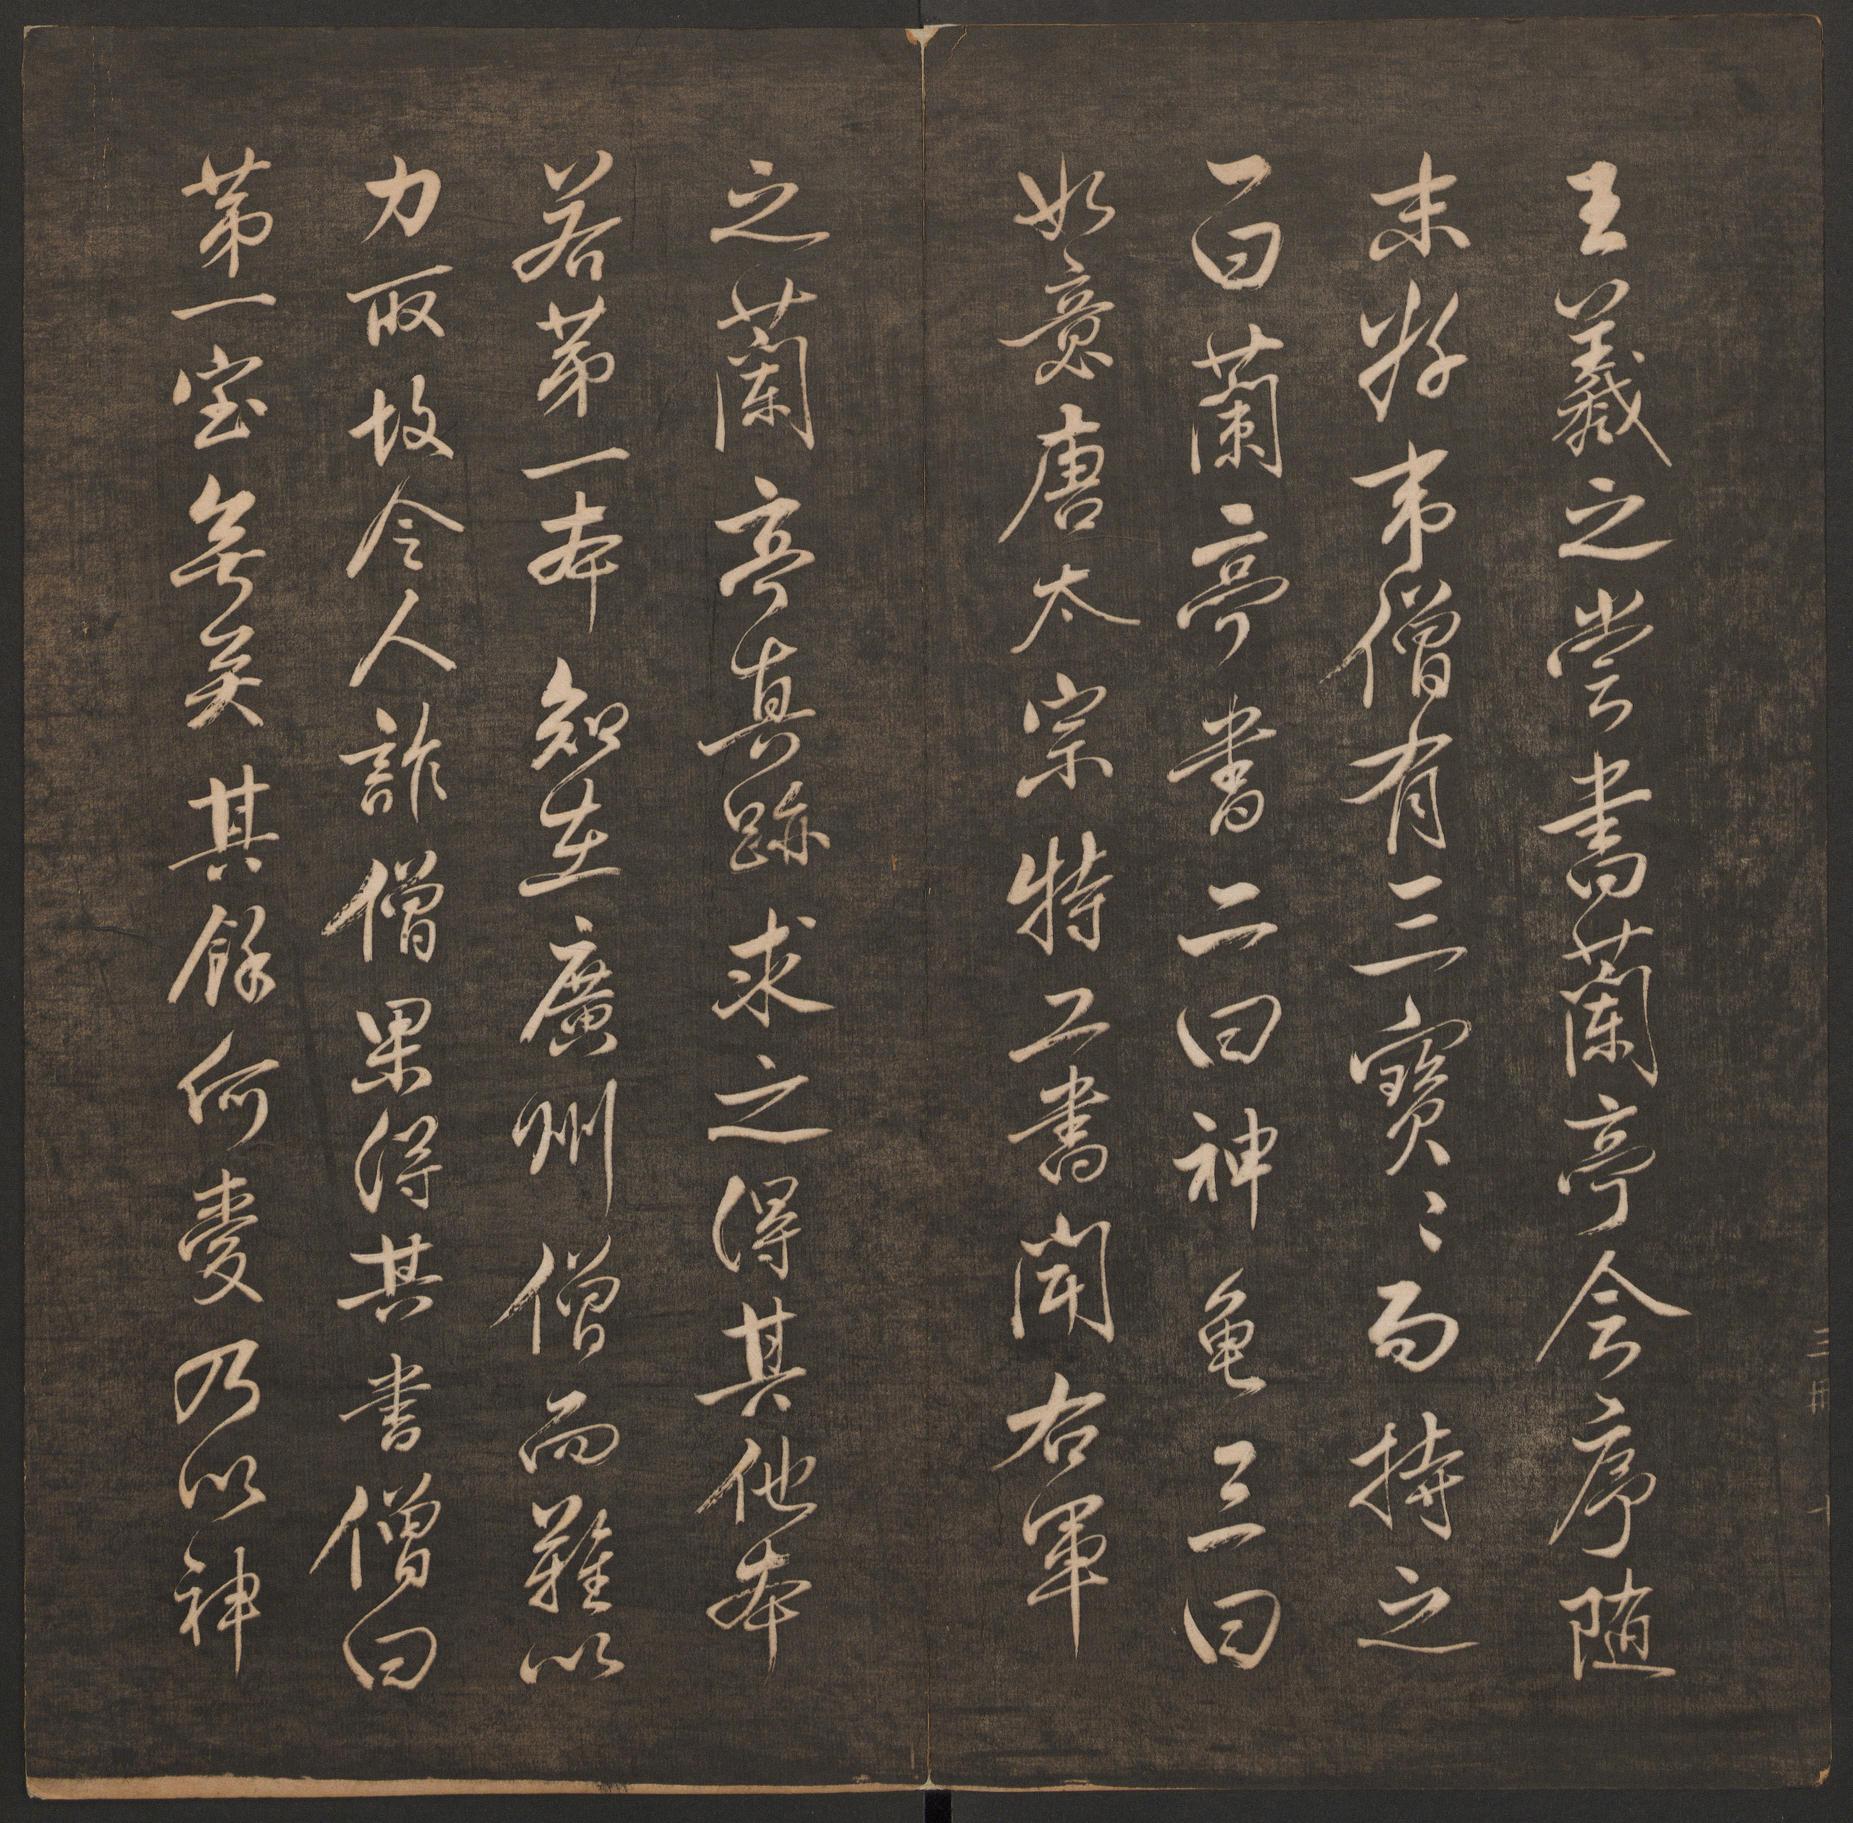 王羲之嘗書蘭亭會序随
末好事僧有三寶〻而持之
一曰蘭亭書二曰神亀三曰
如意唐太宗特工書聞右軍
之蘭亭真跡求之得其他本
若第一本知在廣州僧而難以
力取故令人詐僧果得其書僧曰
第一宝無矣其餘何愛乃以神